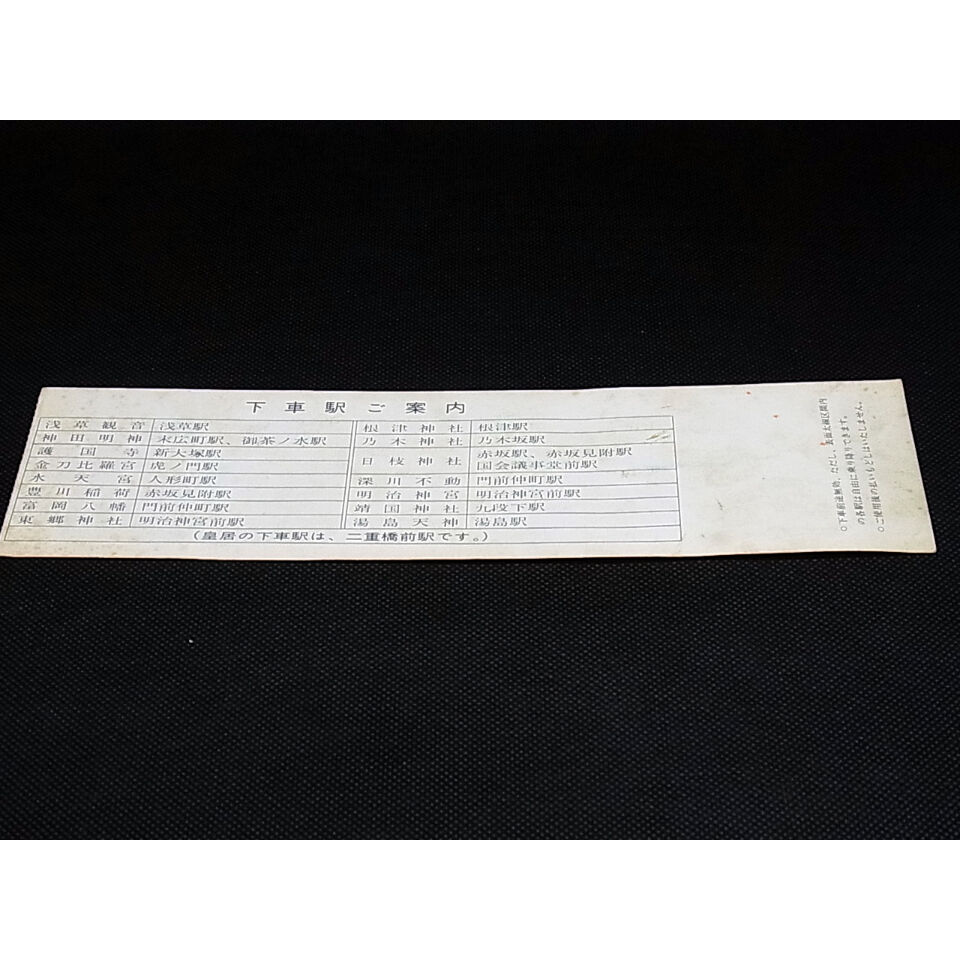 下車駅ご案内
浅草観音 浅草駅
神田明神 末広町駅、御茶ノ水駅
護国寺 新大塚駅
金刀比羅宮 虎ノ門駅
水天宮 人形町駅
豊川稲荷 赤坂見附駅
富岡八幡 門前仲町駅
東郷神社 明治神宮前駅
根津神社 根津駅
乃木神社 乃木坂駅
日枝神社 赤坂駅、赤坂見附駅
国会議事堂前駅
深川不動 門前仲町駅
明治神宮 明治神宮前駅
靖国神社 九段下駅
湯島天神 湯島駅
(皇居の下車駅は、二重橋前駅です。)
○下車前途無効、ただし、表面太線区間内
の各駅は自由に乗り降りできます。
○ご使用後の払いもどしはいたしません。